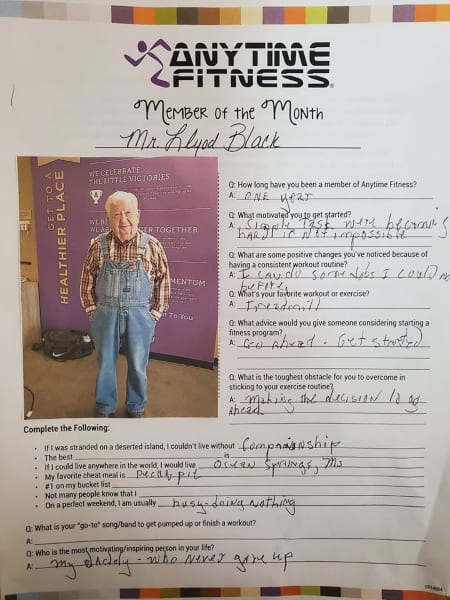 ANYTIME
FITNESS®
MEMBER OF THE MONTH
Mr. Llyod Black
GET TO A
HEALTHIER PLACE
WE CELEBRATE
THE LITTLE VICTORIES
Q: How long have you been a member of Anytime Fitness?
A: ONE year
Q: What motivated you to get started?
A: Simple Task were becoming
HARD if Not impossible
Q: What are some positive changes you've noticed because of
having a consistent workout routine?
A: I can do some Jobs I could no
before,
Q: What's your favorite workout or exercise?
A: Treadmill
Q: What advice would you give someone considering starting a
fitness program?
A: Go Ahead. Get started
Q: What is the toughest obstacle for you to overcome in
sticking to your exercise routine?
A: making the decision to go
Ahead.
Complete the Following:
• If I was stranded on a deserted island, I couldn't live without Companionship
• The best is
• If I could live anywhere in the world, I would live Ocean Springs, Ms
• My favorite cheat meal is pecan pie
• #1 on my bucket list
• Not many people know that I
• On a perfect weekend, I am usually busy-doing nothing
Q: What is your "go-to" song/band to get pumped up or finish a workout?
A:
Q: Who is the most motivating/inspiring person in your life?
A: my daddy - who never gave up